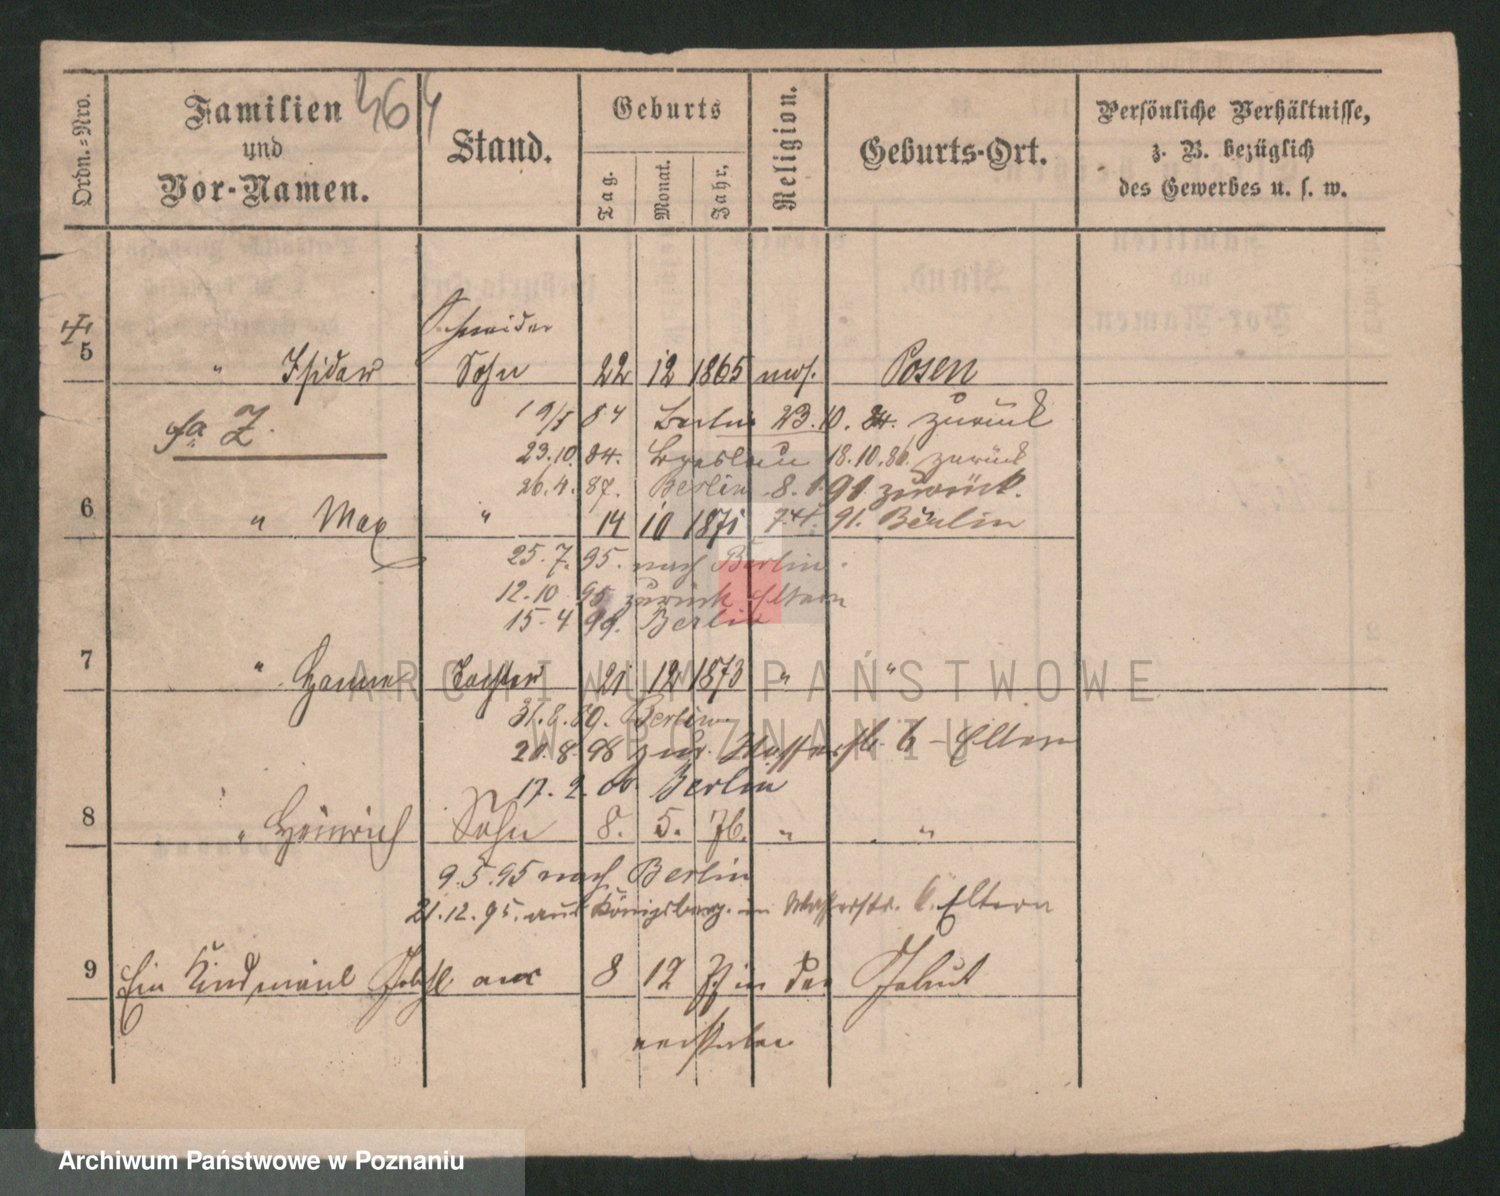 364
Ordn.-Nro.
Familien und Vor-Namen.
Stand.
Geburts
Tag.
Monat.
Jahr.
Religion.
Geburts-Ort.
Persönliche Verhältnisse, z. B. bezüglich des Gewerbes u. s. w.
Schneider
5 " Isidor Sohn 22 12 1865 mos. Posen
19/5 84 Berlin 23.10.84. zurück
Z.
23.10.84. Breslau 18.10.86. zurück
26.4.87. Berlin 8.1.91. zurück.
6 " Max " 14 10 1871 91. Berlin
25.7.95. nach Berlin.
12.10.95 zurück Eltern
15.4 99. Berlin
7 " Hanne Tochter 21 12 1873 " "
Berlin
20.8.98 zur. Wasserstr. 6 - Eltern
17.2.00 Berlin
8 " Heinrich Sohn 8. 5. 76. " "
9.5.95 nach Berlin
21.12.95. aus Königsberg. in Wasserstr. 6. Eltern
9 Ein Kind männl Geschl. am 8 12 77 in der Geburt
verstorben
ARCHIWUM PAŃSTWOWE
W POZNANIU
Archiwum Państwowe w Poznaniu